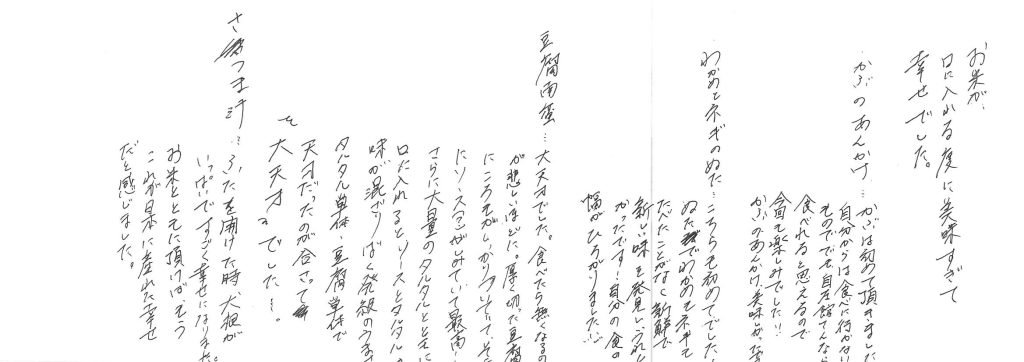 お米が、
口に入れる度に美味すぎて
幸せでした。
かぶのあんかけ…かぶは初めて頂きました
自分からは食べに行かない
ものででも自在館でなら
食べれると思えるので
今回も楽しみでした!!
かぶのあんかけ、美味しかった
わかめとネギのぬた…こちらも初めてでした、
ぬたでわかめもネギも
たべたことがなく新鮮で
新しい味を発見しうれし
かったです!自分の食の
幅がひろがりました…!
豆腐南蛮…大天才でした。食べたら無くなるの
が悲しいほどに。厚く切った豆腐
にころもがしっかりついていて、そこ
にソースがしみていて最高…
さらに大量のタルタルとともに
口に入れるとソースとタルタルの
味が混ざりばく発級のうまさ
タルタル単体、豆腐単体で
天才だったのが合さって
大天才でした…。
さつま汁…ふたを開けた時、大根が
いっぱいですごく幸せになりました。
お米とともに頂けば、もう
これが日本に産れた幸せ
だと感じました。